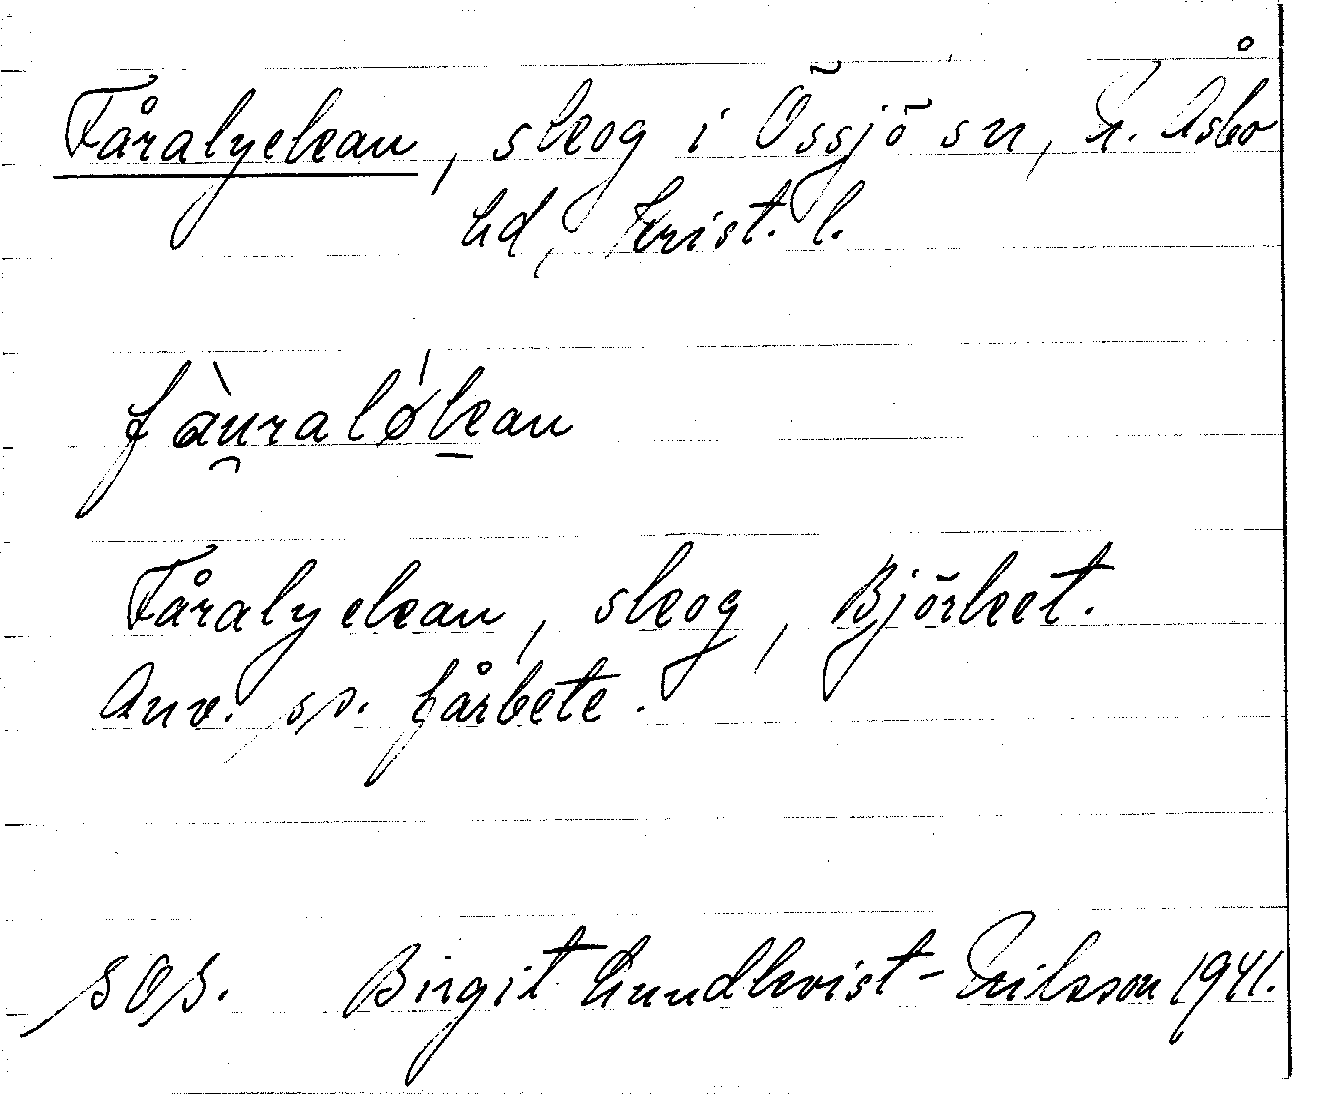 Fåralyckan, skog i Össjö sn, N. Åsbo
hd, Krist. l.
fàu̯raló̱kan
Fåralyckan, skog, Björket.
Anv. ss. fårbete.
SOS. Birgit Lundkvist-Eriksson 1941.